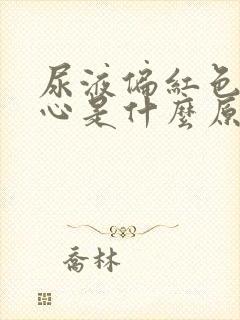 尿液偏紅色
心是什麼原
喬林